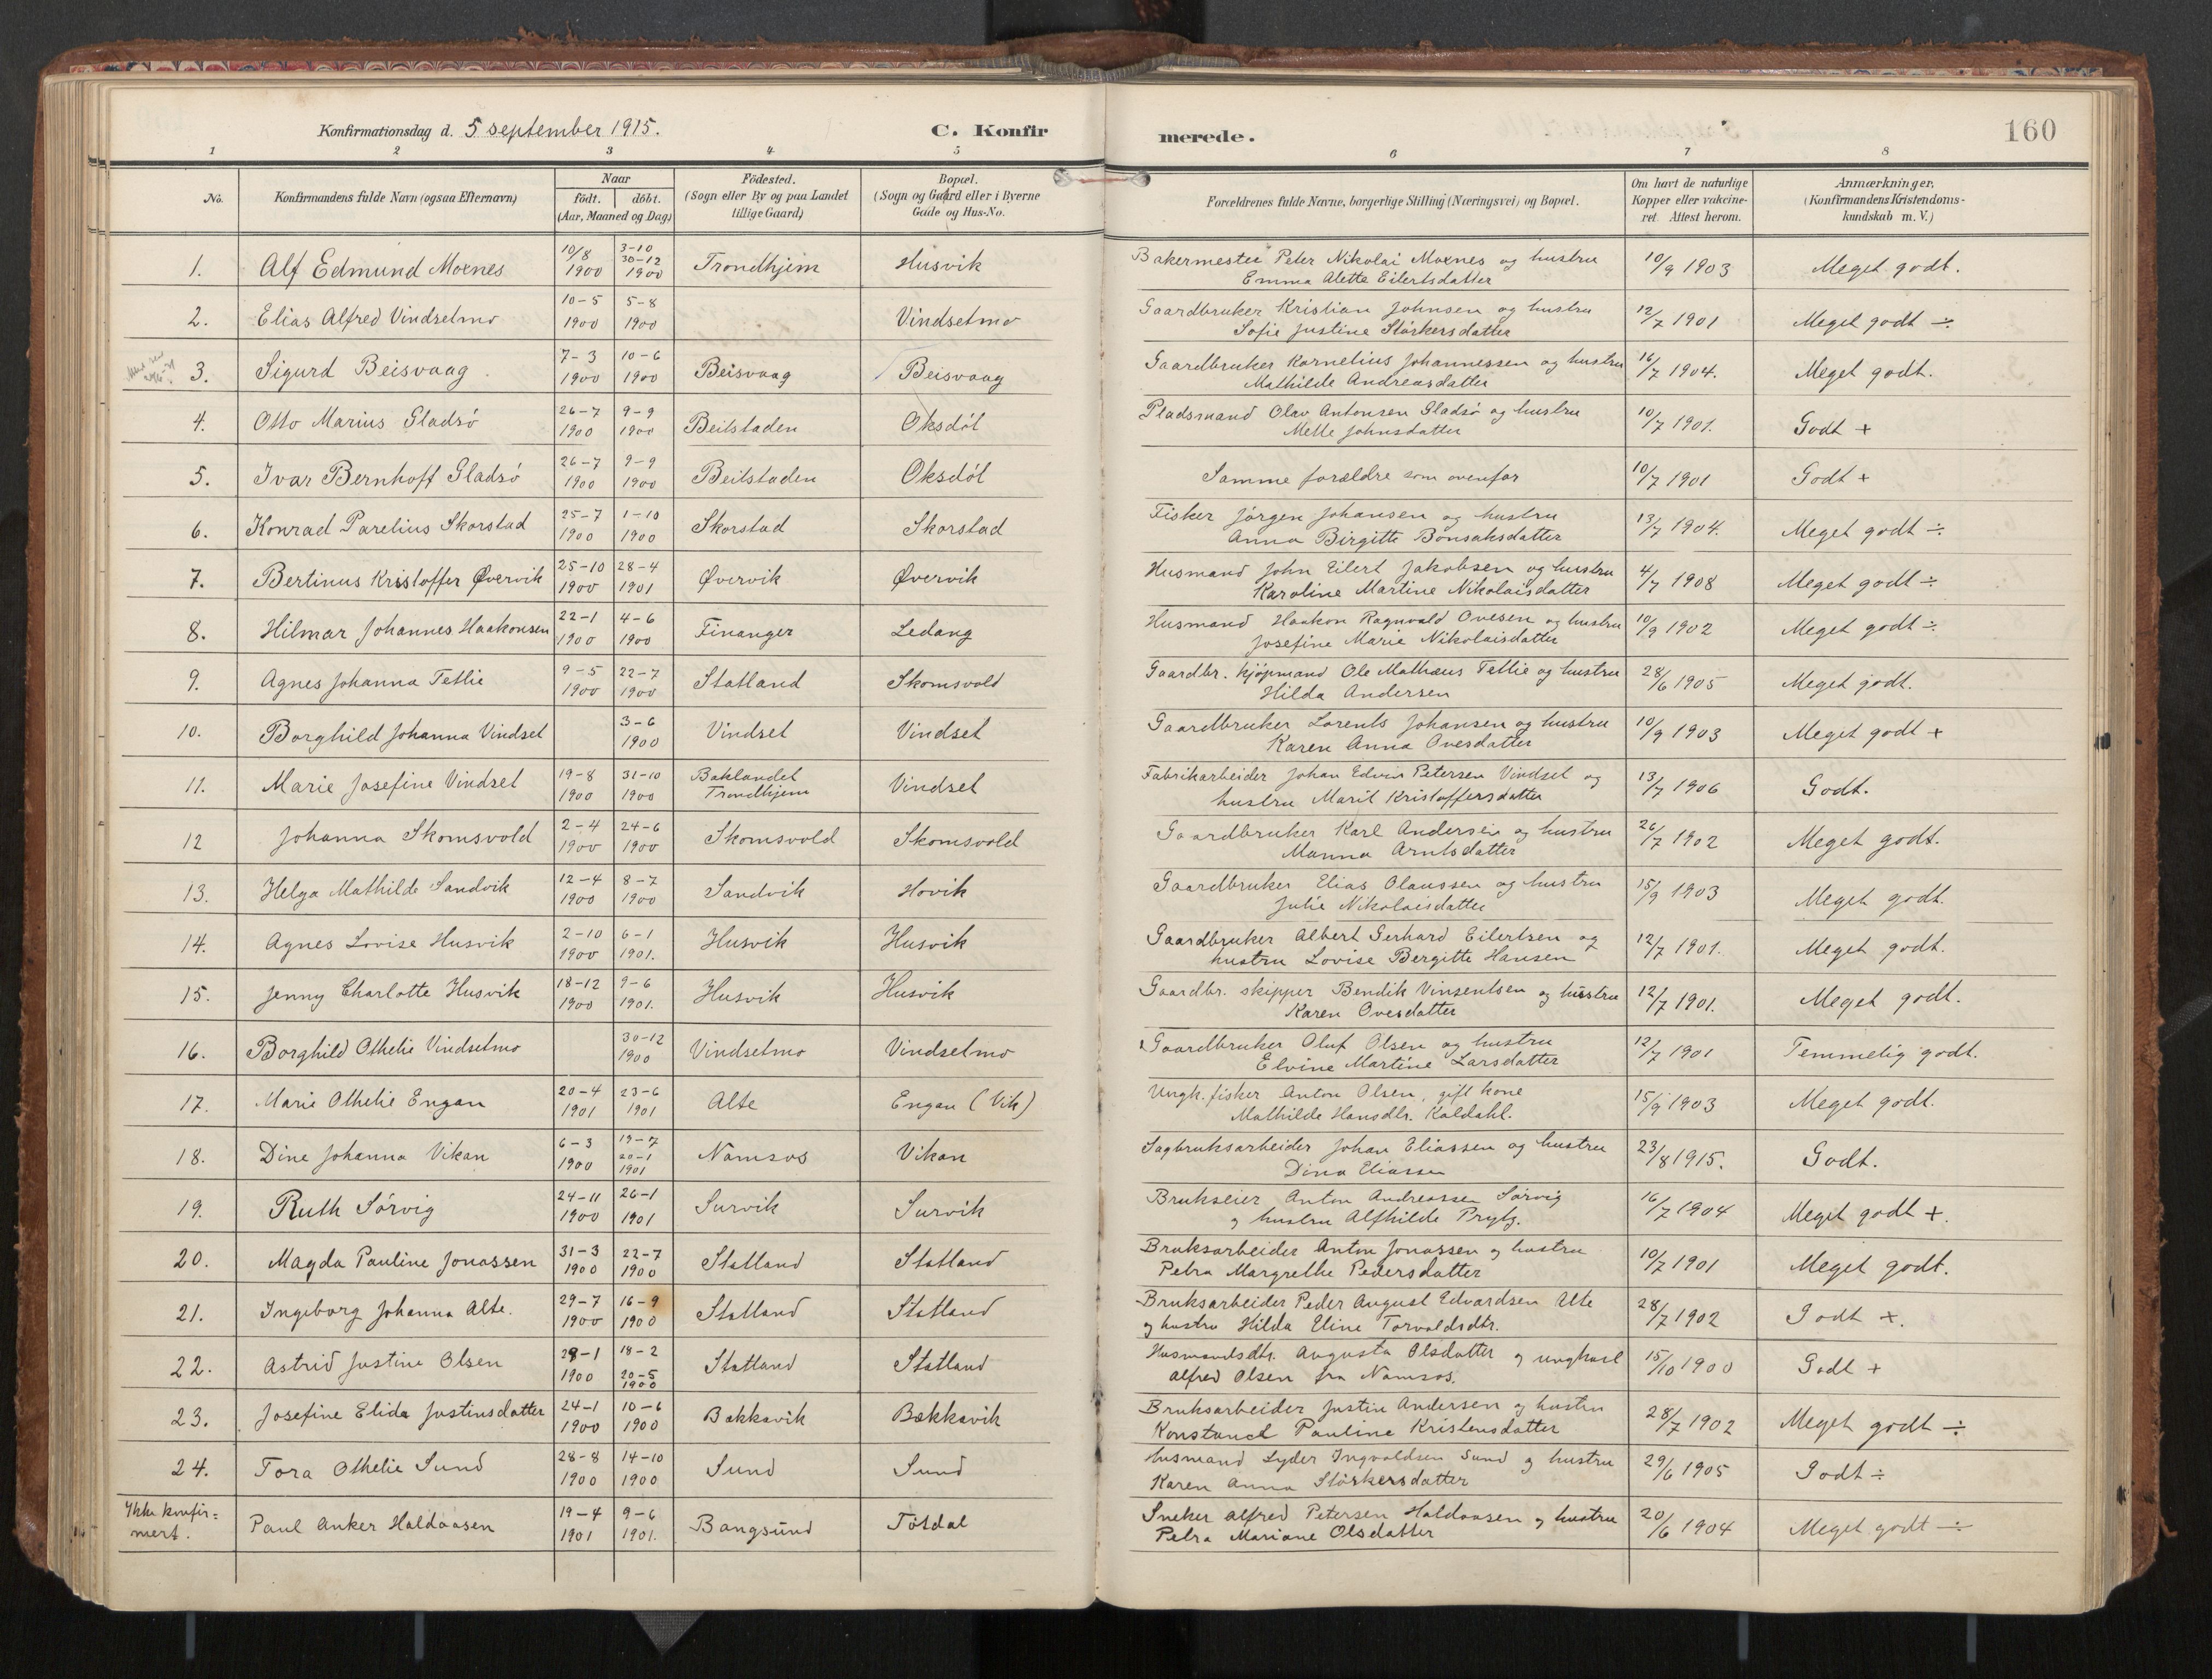 Konfirmationsdag d. 5 september 1915. C. Konfir merede. 160
1 2 3 4 5 6 7 8
No. Konfirmandens fulde Navn (ogsaa Efternavn) Naar födt. döbt. (Aar, Maaned og Dag)
Födested. (Sogn eller By og paa Landet tillige Gaard)
Bopæl. (Sogn og Gaard eller i Byerne Gade og Hus-No.
Forældrenes fulde Navne, borgerlige Stilling (Næringsvei) og Bopæl.
Om havt de naturlige Kopper eller vakcineret. Attest herom.
Anmærkninger, (Konfirmandens Kristendomskundskab m. V.)
1. Alf Edmund Moxnes 10/8 1900 3-10 30-12 1900 Trondhjem Husvik Bakermester Peter Nikolai Moxnes og hustru Emma Alette Eilertsdatter 10/9 1903 Meget godt.
2. Elias Alfred Vindsetmo 10-5 1900 5-8 1900 Vindsetmo Gaardbruker Kristian Johnsen og hustru Sofie Justine Störkersdatter 12/7 1901 Meget godt ÷
3. Sigurd Beisvaag 7-3 1900 10-6 1900 Beisvaag Beisvaag Gaardbruker Kornelius Johannessen og hustru Mathilde Andreasdatter 16/7 1904. Meget godt.
4. Otto Marius Gladsö 26-7 1900 9-9 1900 Beitstaden Oksdöl Pladsmand Olav Antonsen Gladsö og hustru Mette Johnsdatter 10/7 1901. Godt +
5. Ivar Bernhoff Gladsö 26-7 1900 9-9 1900 Beitstaden Oksdöl Samme forældre som ovenfor 10/7 1901 Godt +
6. Konrad Parelius Skorstad 25-7 1900 1-10 1900 Skorstad Skorstad Fisker Jörgen Johansen og hustru Anna Birgitte Bonsaksdatter 13/7 1904. Meget godt ÷
7. Bertinus Kristoffer Øvervik 25-10 1900 28-4 1901 Øvervik Øvervik Husmand John Eilert Jakobsen og hustru Karoline Martine Nikolaisdatter 4/7 1908 Meget godt ÷
8. Hilmar Johannes Haakonsen 22-1 1900 4-6 1900 Finanger Ledang Husmand Haakon Ragnvald Ovesen og hustru Josefine Marie Nikolaisdatter 10/9 1902 Meget godt ÷
9. Agnes Johanna Tetlie 9-5 1900 22-7 1900 Statland Skomsvold Gaardbr. kjøpmand Ole Mathæus Tetlie og hustru Hilda Andersen 28/6 1905 Meget godt.
10. Borghild Johanna Vindset 3-6 1900 Vindset Vindset Gaardbruker Lorents Johansen og hustru Karen Anna Ovesdatter 10/9 1903 Meget godt +
11. Marie Josefine Vindset 19-8 1900 31-10 1900 Baklandet Trondhjem Vindset Fabrikarbeider Johan Edvin Petersen Vindset og hustru Marit Kristoffersdatter 13/7 1906 Godt.
12 Johanna Skomsvold 2-4 1900 24-6 1900 Skomsvold Skomsvold Gaardbruker Karl Andersen og hustru Manna Arntsdatter 26/7 1902 Meget godt.
13. Helga Mathilde Sandvik 12-4 1900 8-7 1900 Sandvik Hovik Gaardbruker Elias Olaussen og hustru Julie Nikolaisdatter 15/9 1903 Meget godt.
14. Agnes Lovise Husvik 2-10 1900 6-1 1901. Husvik Husvik Gaardbruker Albert Gerhard Eilertsen og hustru Lovise Bergitte Hansen 12/7 1901. Meget godt.
15. Jenny Charlotte Husvik 18-12 1900 9-6 1901. Husvik Husvik Gaardbr. skipper Bendik Vinsentsen og hustru Karen Ovesdatter 12/7 1901. Meget godt.
16. Borghild Othelie Vindsetmo 30-12 1900 Vindsetmo Vindsetmo Gaardbruker Oluf Olsen og hustru Elvine Martine Larsdatter 12/7 1901 Temmelig godt.
17. Marie Othelie Engan 20-4 1901 23-6 1901 Alte Engan (Vik) Ungk. fisker Anton Olsen, gift kone Mathilde Hansdtr. Kaldahl. 15/9 1903 Meget godt.
18. Dine Johanna Vikan 6-3 1900 19-7 20-1 1901 Namsos Vikan Sagbruksarbeider Johan Eliassen og hustru Dina Eliassen 23/8 1915. Godt.
19. Ruth Sörvig 24-11 1900 26-1 1901 Survik Survik Brukseier Anton Andreassen Sörvig og hustru Alfhilde Prytz. 16/7 1904 Meget godt +.
20. Magda Pauline Jonassen 31-3 1900 22-7 1900 Statland Statland Bruksarbeider Anton Jonassen og hustru Petra Margrethe Pedersdatter 10/7 1901 Meget godt.
21. Ingeborg Johanna Alte. 29-7 1900 16-9 1900 Statland Statland Bruksarbeider Peder August Edvardsen Alte og hustru Hilda Eline Torvaldsdtr. 28/7 1902 Godt +.
22. Astrid Justine Olsen 29-1 1900 18-2 20-5 1900 Statland Statland Husmandsdtr. Augusta Olsdatter og ungkarl Alfred Olsen fra Namsos. 15/10 1900 Godt +
23. Josefine Elida Justinsdatter 24-1 1900 10-6 1900 Bakkavik Bakkavik Bruksarbeider Justin Andersen og hustru Konstance Pauline Kristensdatter 28/7 1902 Meget godt ÷
24. Tora Othelie Sund 28-8 1900 14-10 1900 Sund Sund Husmand Lyder Ingvaldsen Sund og hustru Karen Anna Störkersdatter 29/6 1905 Godt ÷
Ikke konfirmert. Paul Anker Haldaasen 19-4 1901 9-6 1901. Bangsund Tötdal Sneker Alfred Petersen Haldaasen og hustru Petra Mariane Olsdatter 20/6 1904 Meget godt ÷